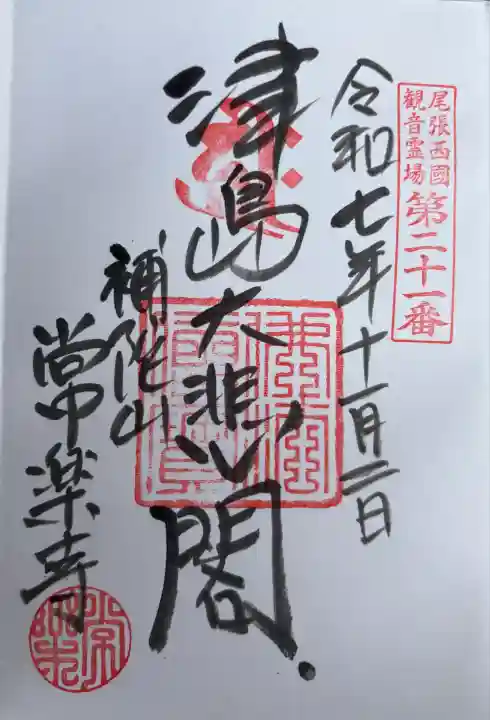 尾張西國
観音霊場
第二十一番
令和七年十一月二日
津島大悲閣
補陀山
常楽寺
佛法僧寶
常楽